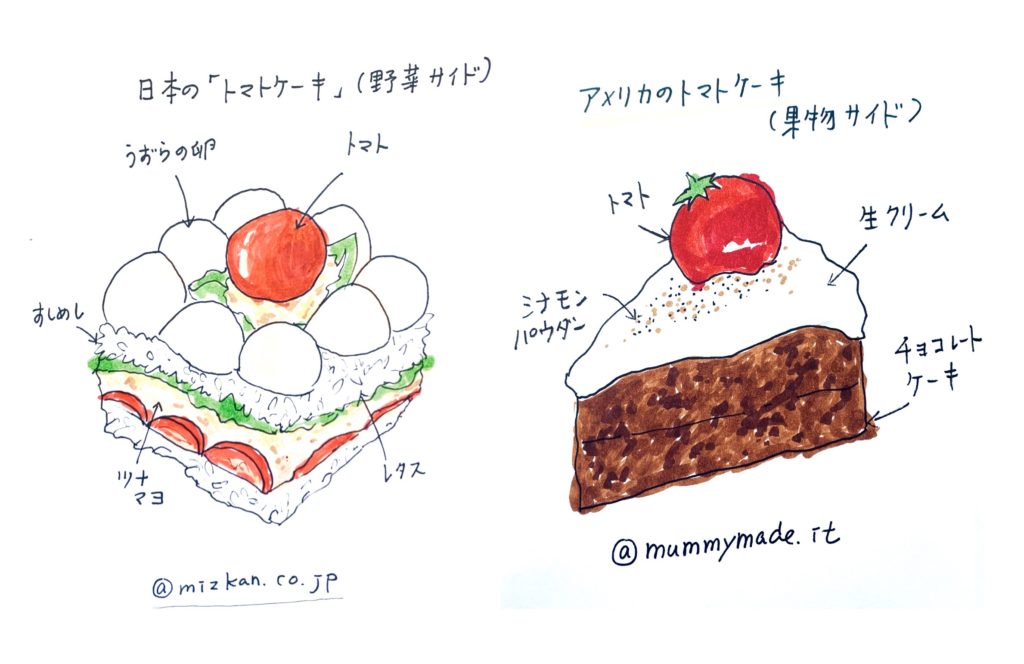 日本の「トマトケーキ」(野菜サイド)
うずらの卵
トマト
すしめし
ツナ
マヨ
レタス
@mizkan.co.jp
アメリカのトマトケーキ
(果物サイド)
トマト
生クリーム
シナモン
パウダー
チョコレート
ケーキ
@mummymade.it